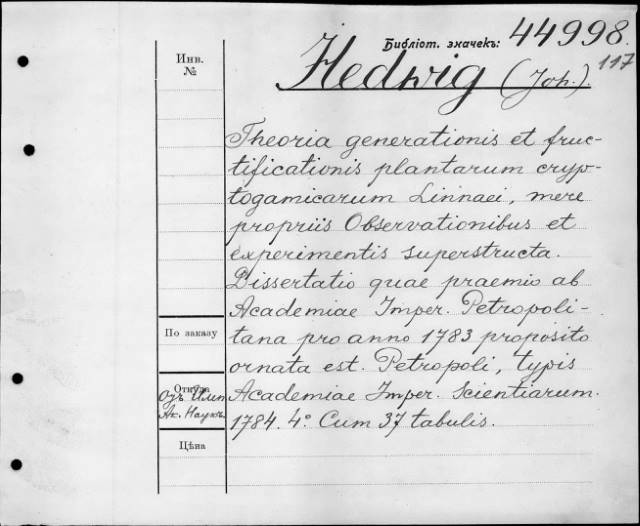 Библіот. значекъ: 44998.
117
Инв.
№
Hedwig (Joh.)
Theoria generationis et fruc-
tificationis plantarum cryp-
togamicarum Linnaei, mere
propriis Observationibus et
experimentis superstructa.
Dissertatio quae praemio ab
Academiae Imper. Petropoli-
tana pro anno 1783 proposito
ornata est. Petropoli, typis
Academiae Imper. Scientiarum.
1784. 4º Cum 37 tabulis.
По заказу
Откуда
Отъ Имп.
Ак. Наукъ
Цѣна